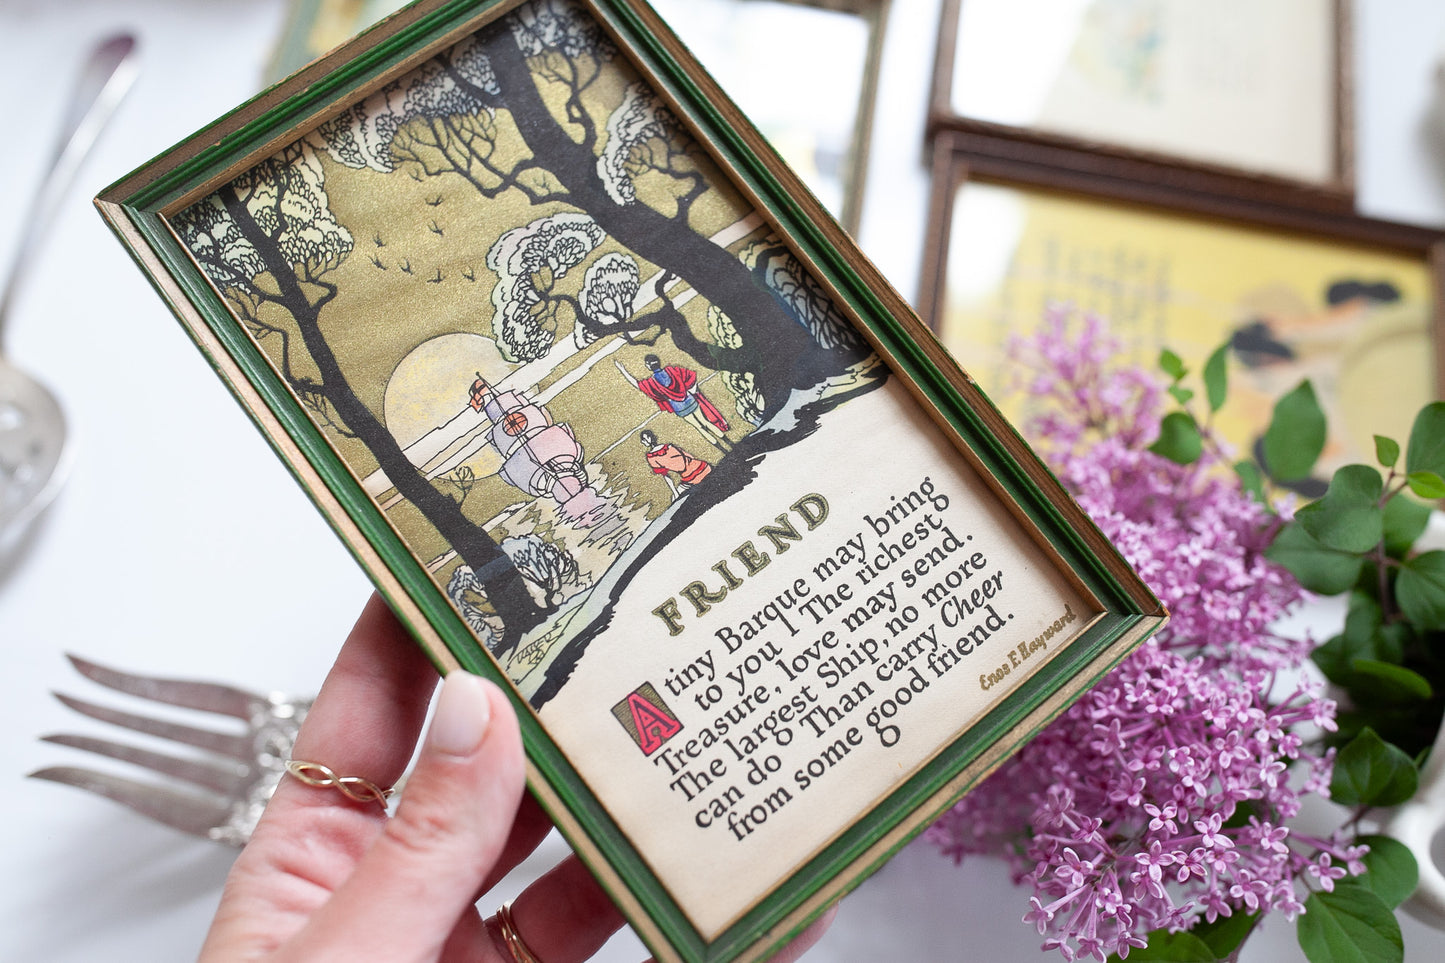 FRIEND
A tiny Barque may bring
to you | The richest
Treasure, love may send.
The largest Ship, no more
can do | Than carry Cheer
from some good friend.
Enos F. Hayward